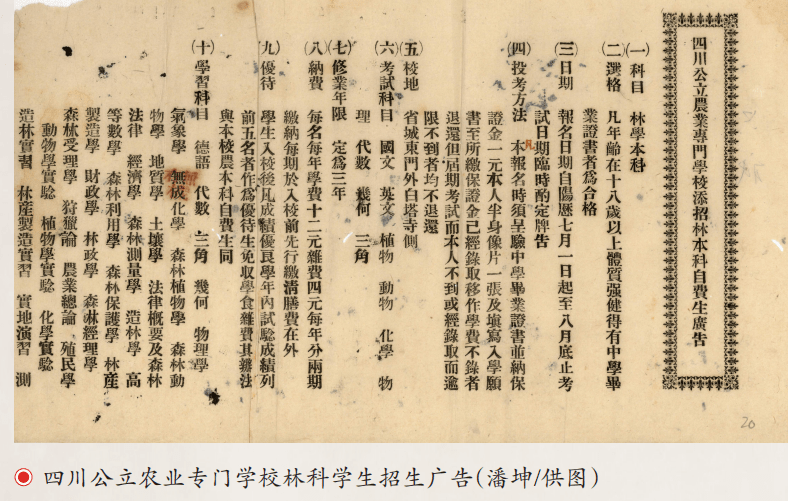 四川公立農業專門學校添招林本科自費生廣告
(一)科目 林學本科
(二)選格 凡年齡在十八歲以上體質强健得有中學畢
業證書者爲合格
(三)日期 報名日期自陽曆七月一日起至八月底止考
試日期臨時酌定牌告
(四)投考方法 本報名時須呈驗中學畢業證書並納保
證金一元本人半身像片一張及填寫入學願
書至所繳保證金已經錄取移作學費不錄者
退還但屆期考試而本人不到或經錄取而逾
限不到者均不退還
(五)校地 省城東門外白塔寺側
(六)考試科目 國文 英文 植物 動物 化學 物
理 代數 幾何 三角
(七)修業年限 定爲三年
(八)納費 每名每年學費十二元雜費四元每年分兩期
繳納每期於入校前先行繳清膳費在外
(九)優待 學生入校後凡成績優良學年內試驗成績列
前五名者作爲優待生免收學食雜費其辦法
與本校農本科自費生同
(十)學習科目 德語 代數 三角 幾何 物理學
氣象學 無成化學 森林植物學 森林動
物學 地質學 土壤學 法律概要及森林
法律 經濟學 森林測量學 造林學 高
等數學 森林利用學 森林保護學 林產
製造學 財政學 林政學 森林經理學
森林受理學 狩獵論 農業總論 殖民學
動物學實驗 植物學實驗 化學實驗
造林實習 林產製造實習 實地演習 測
20
四川公立农业专门学校林科学生招生广告(潘坤/供图)